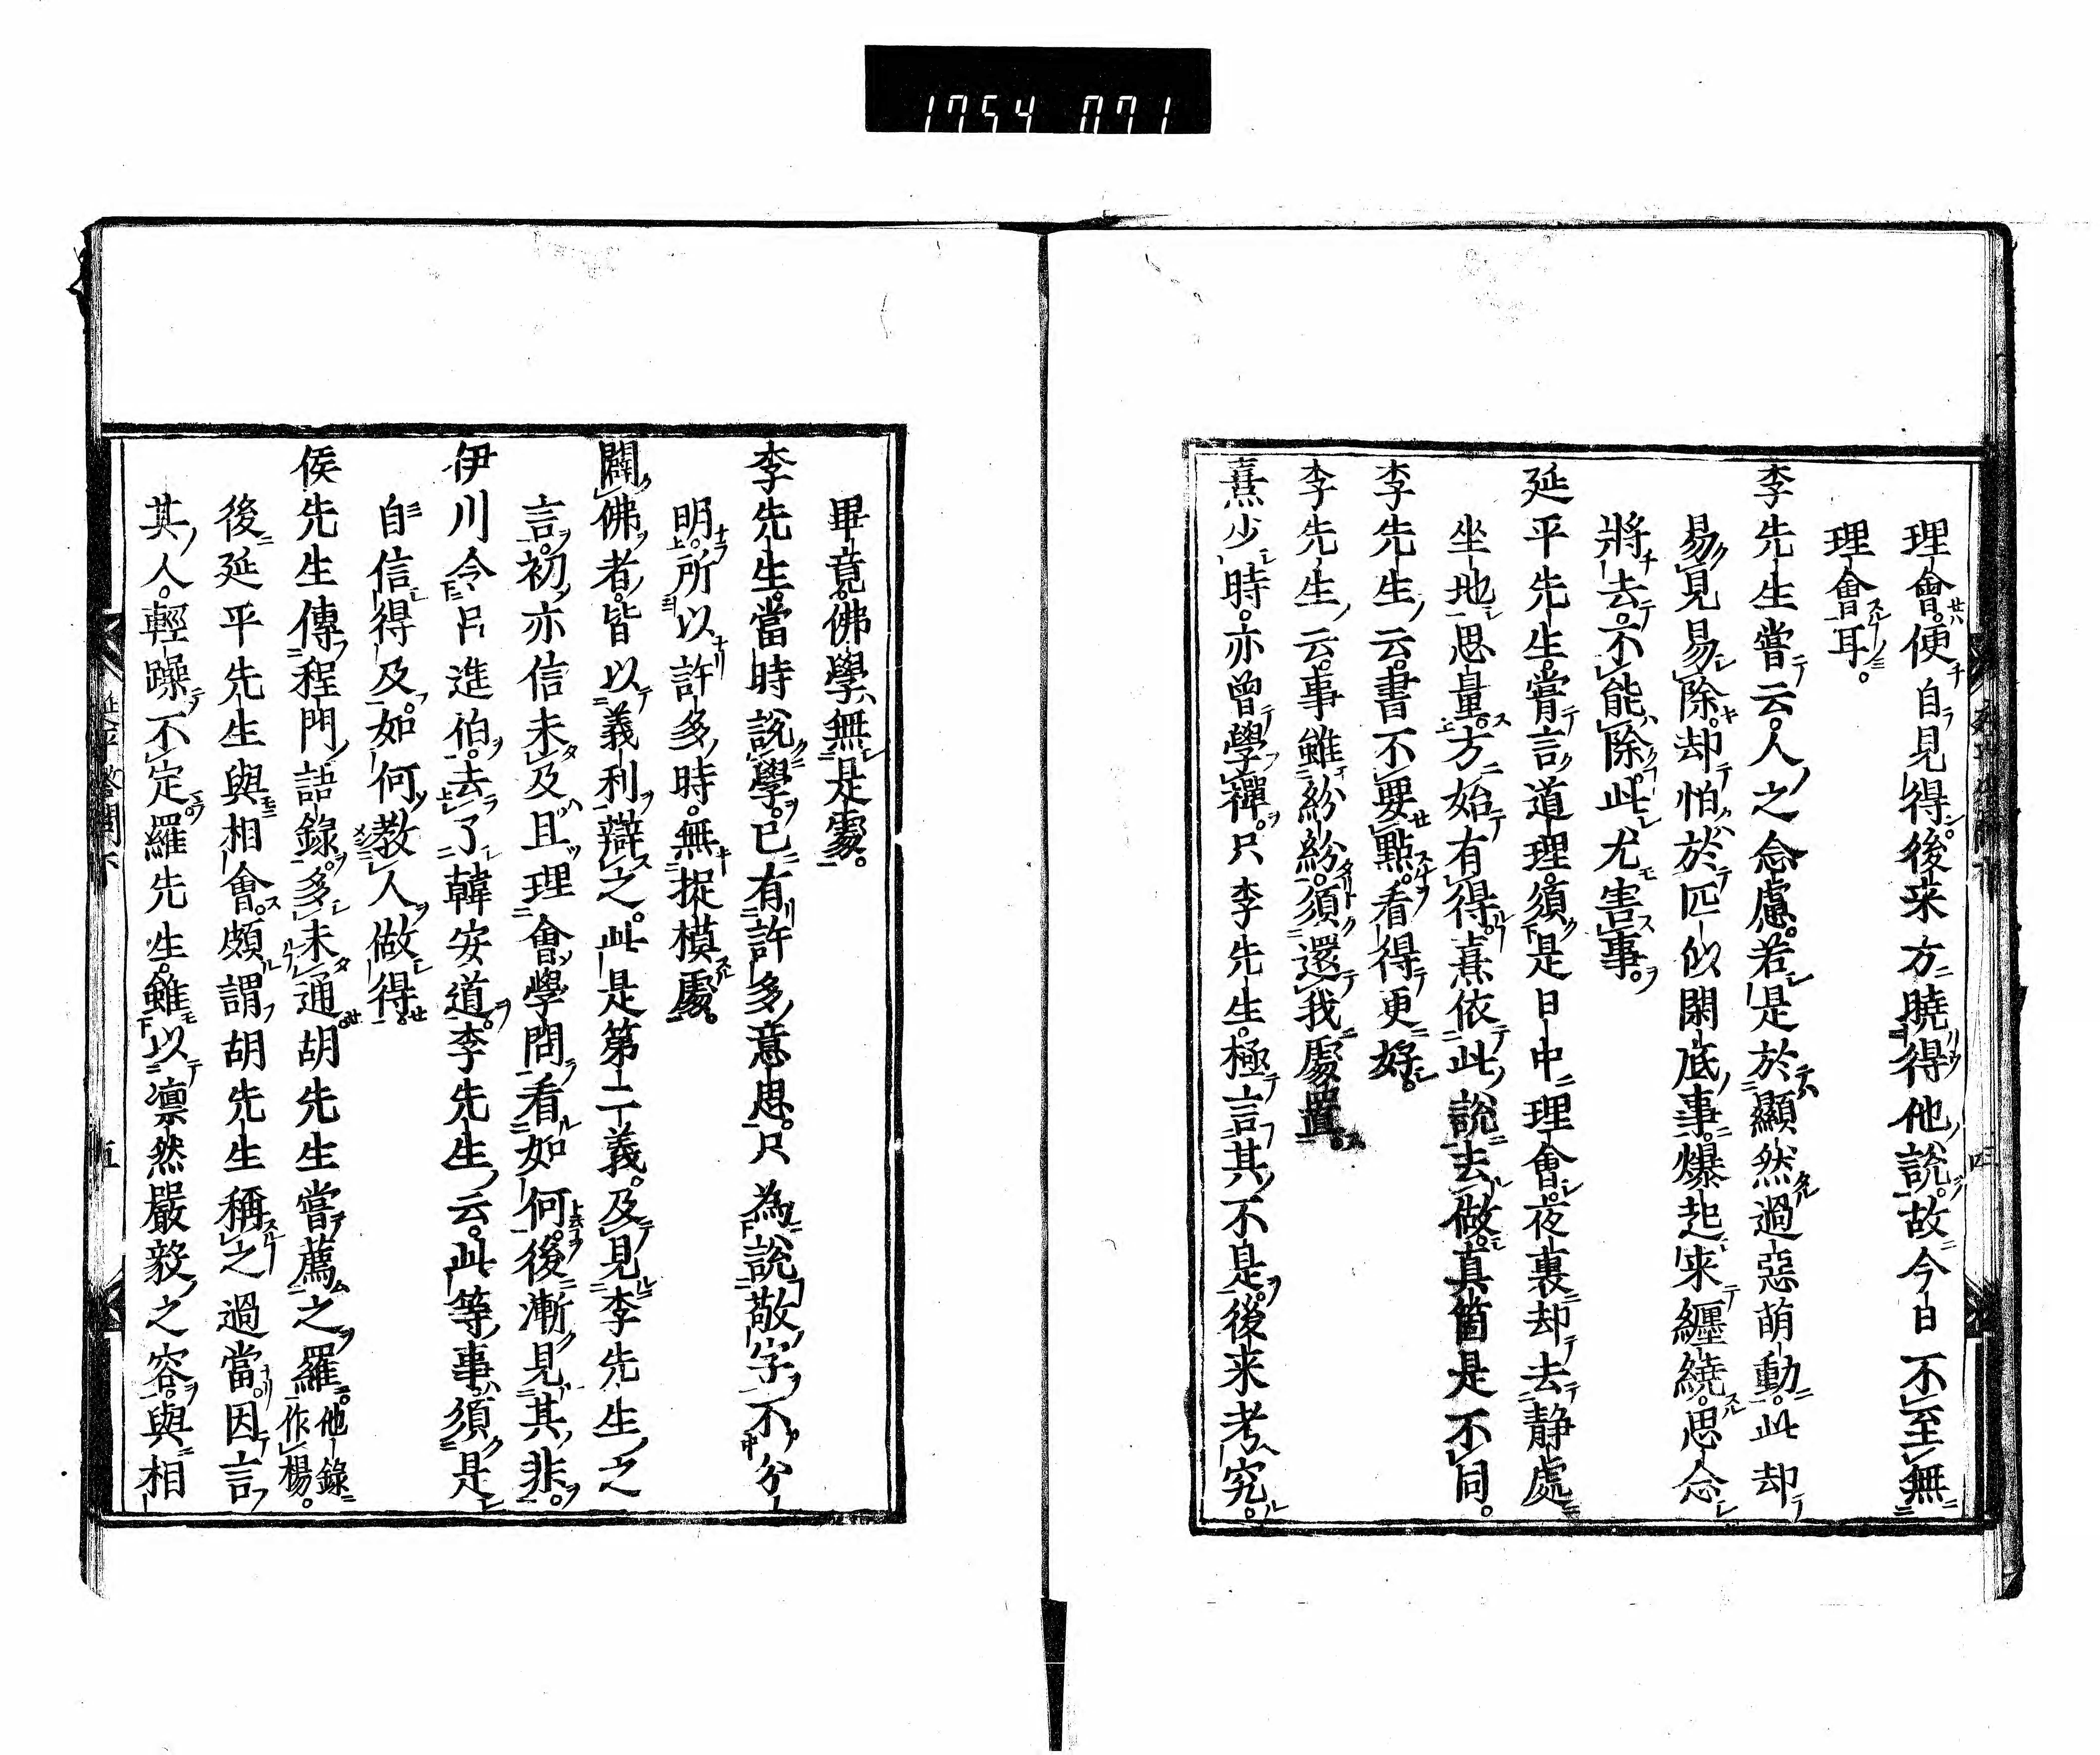 1754 071
理會便自見得後来方曉得他說故今日不至無
理會耳。
李先生嘗云。人之念慮。若是於顯然過惡萌動。此却
易見易除。却怕於匹似閑底事爆起来纏繞。思念
將去。不能除。此尤害事。
延平先生嘗言。道理須是日中理會。夜裏却去静處
坐地思量。方始有得。熹依此說去做。真箇是不同。
李先生云。書不要點。看得更好。
李先生云。事雖紛紛。須還我處置。
熹少時。亦曾學禪。只李先生。極言其不是。後来考究。
畢竟。佛學無是處。
李先生。當時說學。已有許多意思。只為說敬字不分
明。所以許多時。無捉摸處。
闢佛者。皆以義利辯之。此是第二義。及見李先生之
言。初亦信未及。且理會學問看如何。後漸見其非。
伊川令呂進伯。去了韓安道。李先生云。此等事。須是
自信得及。如何教人做得。
侯先生傳程門語錄。多未通胡先生嘗薦之羅。他錄作楊。
後延平先生與相會。頗謂胡先生稱之過當。因言
其人。輕躁不定。羅先生。雖以凛然嚴毅之容。與相
延平答問下
五
四